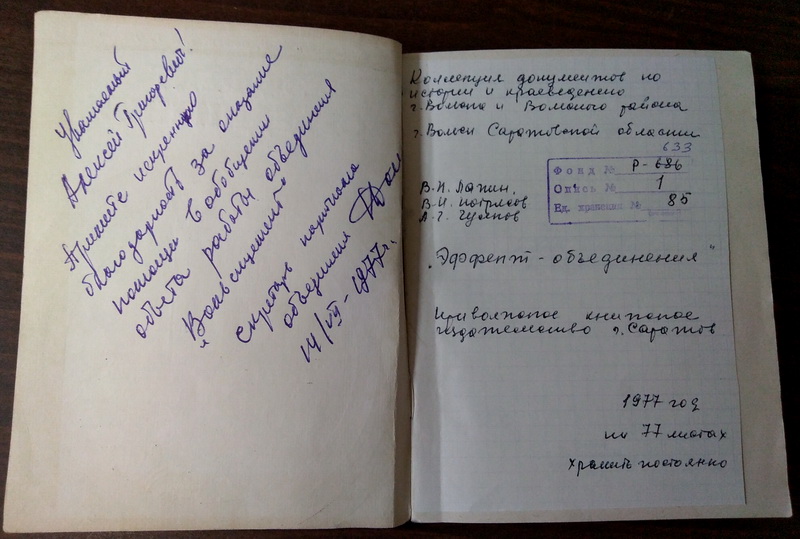 Уважаемый
Алексей Григорьевич!
Примите искреннюю
благодарность за оказание
помощи в обобщении
опыта работы объединения
"Вольскцемент"
секретарь парткома
объединения
14/VII-1977г.
Коллекция документов по
истории и краеведению
г. Вольска и Вольского района
г. Вольск Саратовской области
633
Фонд № Р-686
Опись № 1
Ед. хранения № 85
В.И. Лапин,
В.И.
А.Г.
"Эффект - объединения"
Приволжское книжное
издательство г. Саратов
1977 год
на 77 листах
хранить постоянно